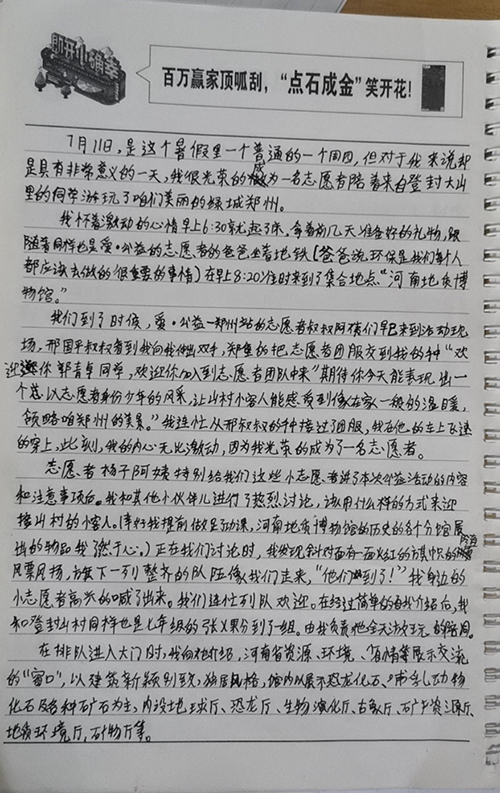 即开小锦囊
百万赢家顶呱刮,“点石成金”笑开花!
7月11日,是这个暑假里一个普通的一个周四,但对于我来说却
是具有非常意义的一天,我很光荣的成为一名志愿者陪着来自登封大山
里的同学游玩了咱们美丽的绿城郑州。
我怀着激动的心情早上6:30就起了床,拿着前几天准备好的礼物,跟
随着同样也是爱·公益的志愿者的爸爸坐着地铁(爸爸说环保是我们每个人
都应该去做的很重要的事情)在早上8:20准时来到了集合地点“河南地质博
物馆。”
我们到了时候,爱·公益-郑州站的志愿者叔叔阿姨们早已来到活动现
场,邢国平叔叔看到我向我伸出双手,郑重的把志愿者团服交到我的种“欢
迎你 同学,欢迎你加入到志愿者团队中来”期待你今天能表现出一
个总以志愿者身份少年的风采,让山村小客人能感受到像在家一般的温暖,
领略咱郑州的美景。”我连忙从邢叔叔的种接过了团服,我在他的左上飞速
的穿上,此刻,我的内心无比激动,因为我光荣的成为了一名志愿者。
志愿者杨子阿姨特别给我们这些小志愿者讲了本次公益活动的内容
和注意事项后。我和其他小伙伴儿进行了热烈讨论,该用什么样的方式来迎
接山村的小客人。(幸好我提前做足功课,河南地质博物馆的历史的各个分馆展
出的物品我了然于心。)正在我们讨论时,我发现针对面有一面火红的旗帜的
风票风扬,旗下一列整齐的队伍像我们走来,“他们来到了!”我身边的
小志愿者高兴的喊了出来。我们连忙列队欢迎。在经过简单的自我介绍后,我
和登封山村同样也是七年级的张 分到了一组。由我负责他全天游玩的陪同。
在排队进入大门时,我向他介绍,河南省资源、环境、省情等展示交流
的“窗口”,以建筑新颖别致,独居风格,馆内以展示恐龙化石、哺乳动物
化石及各种矿石为主,内设地球厅、恐龙厅、生物演化厅、古象厅、矿产资源厅、
地质环境厅,矿物厅等。